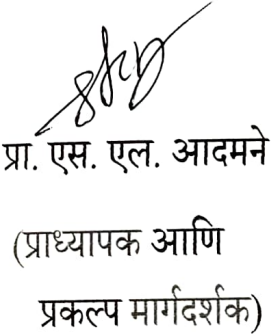 प्रा. एस. एल. आदमने
(प्राध्यापक आणि
प्रकल्प मार्गदर्शक)